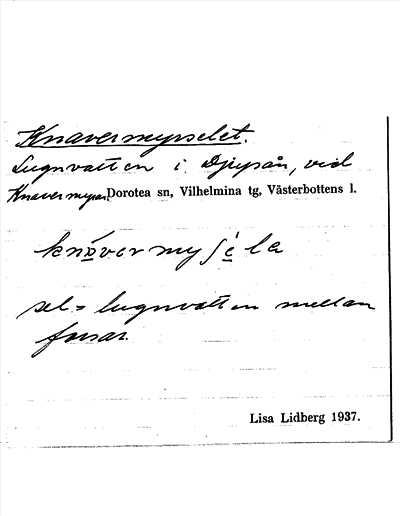 Knavermyrselet.
Lugnvatten i Djupån, vid
Knavermyran, Dorotea sn, Vilhelmina tg, Västerbottens l.
knåvermyʃela
sel = lugnvatten mellan
forsar.
Lisa Lidberg 1937.